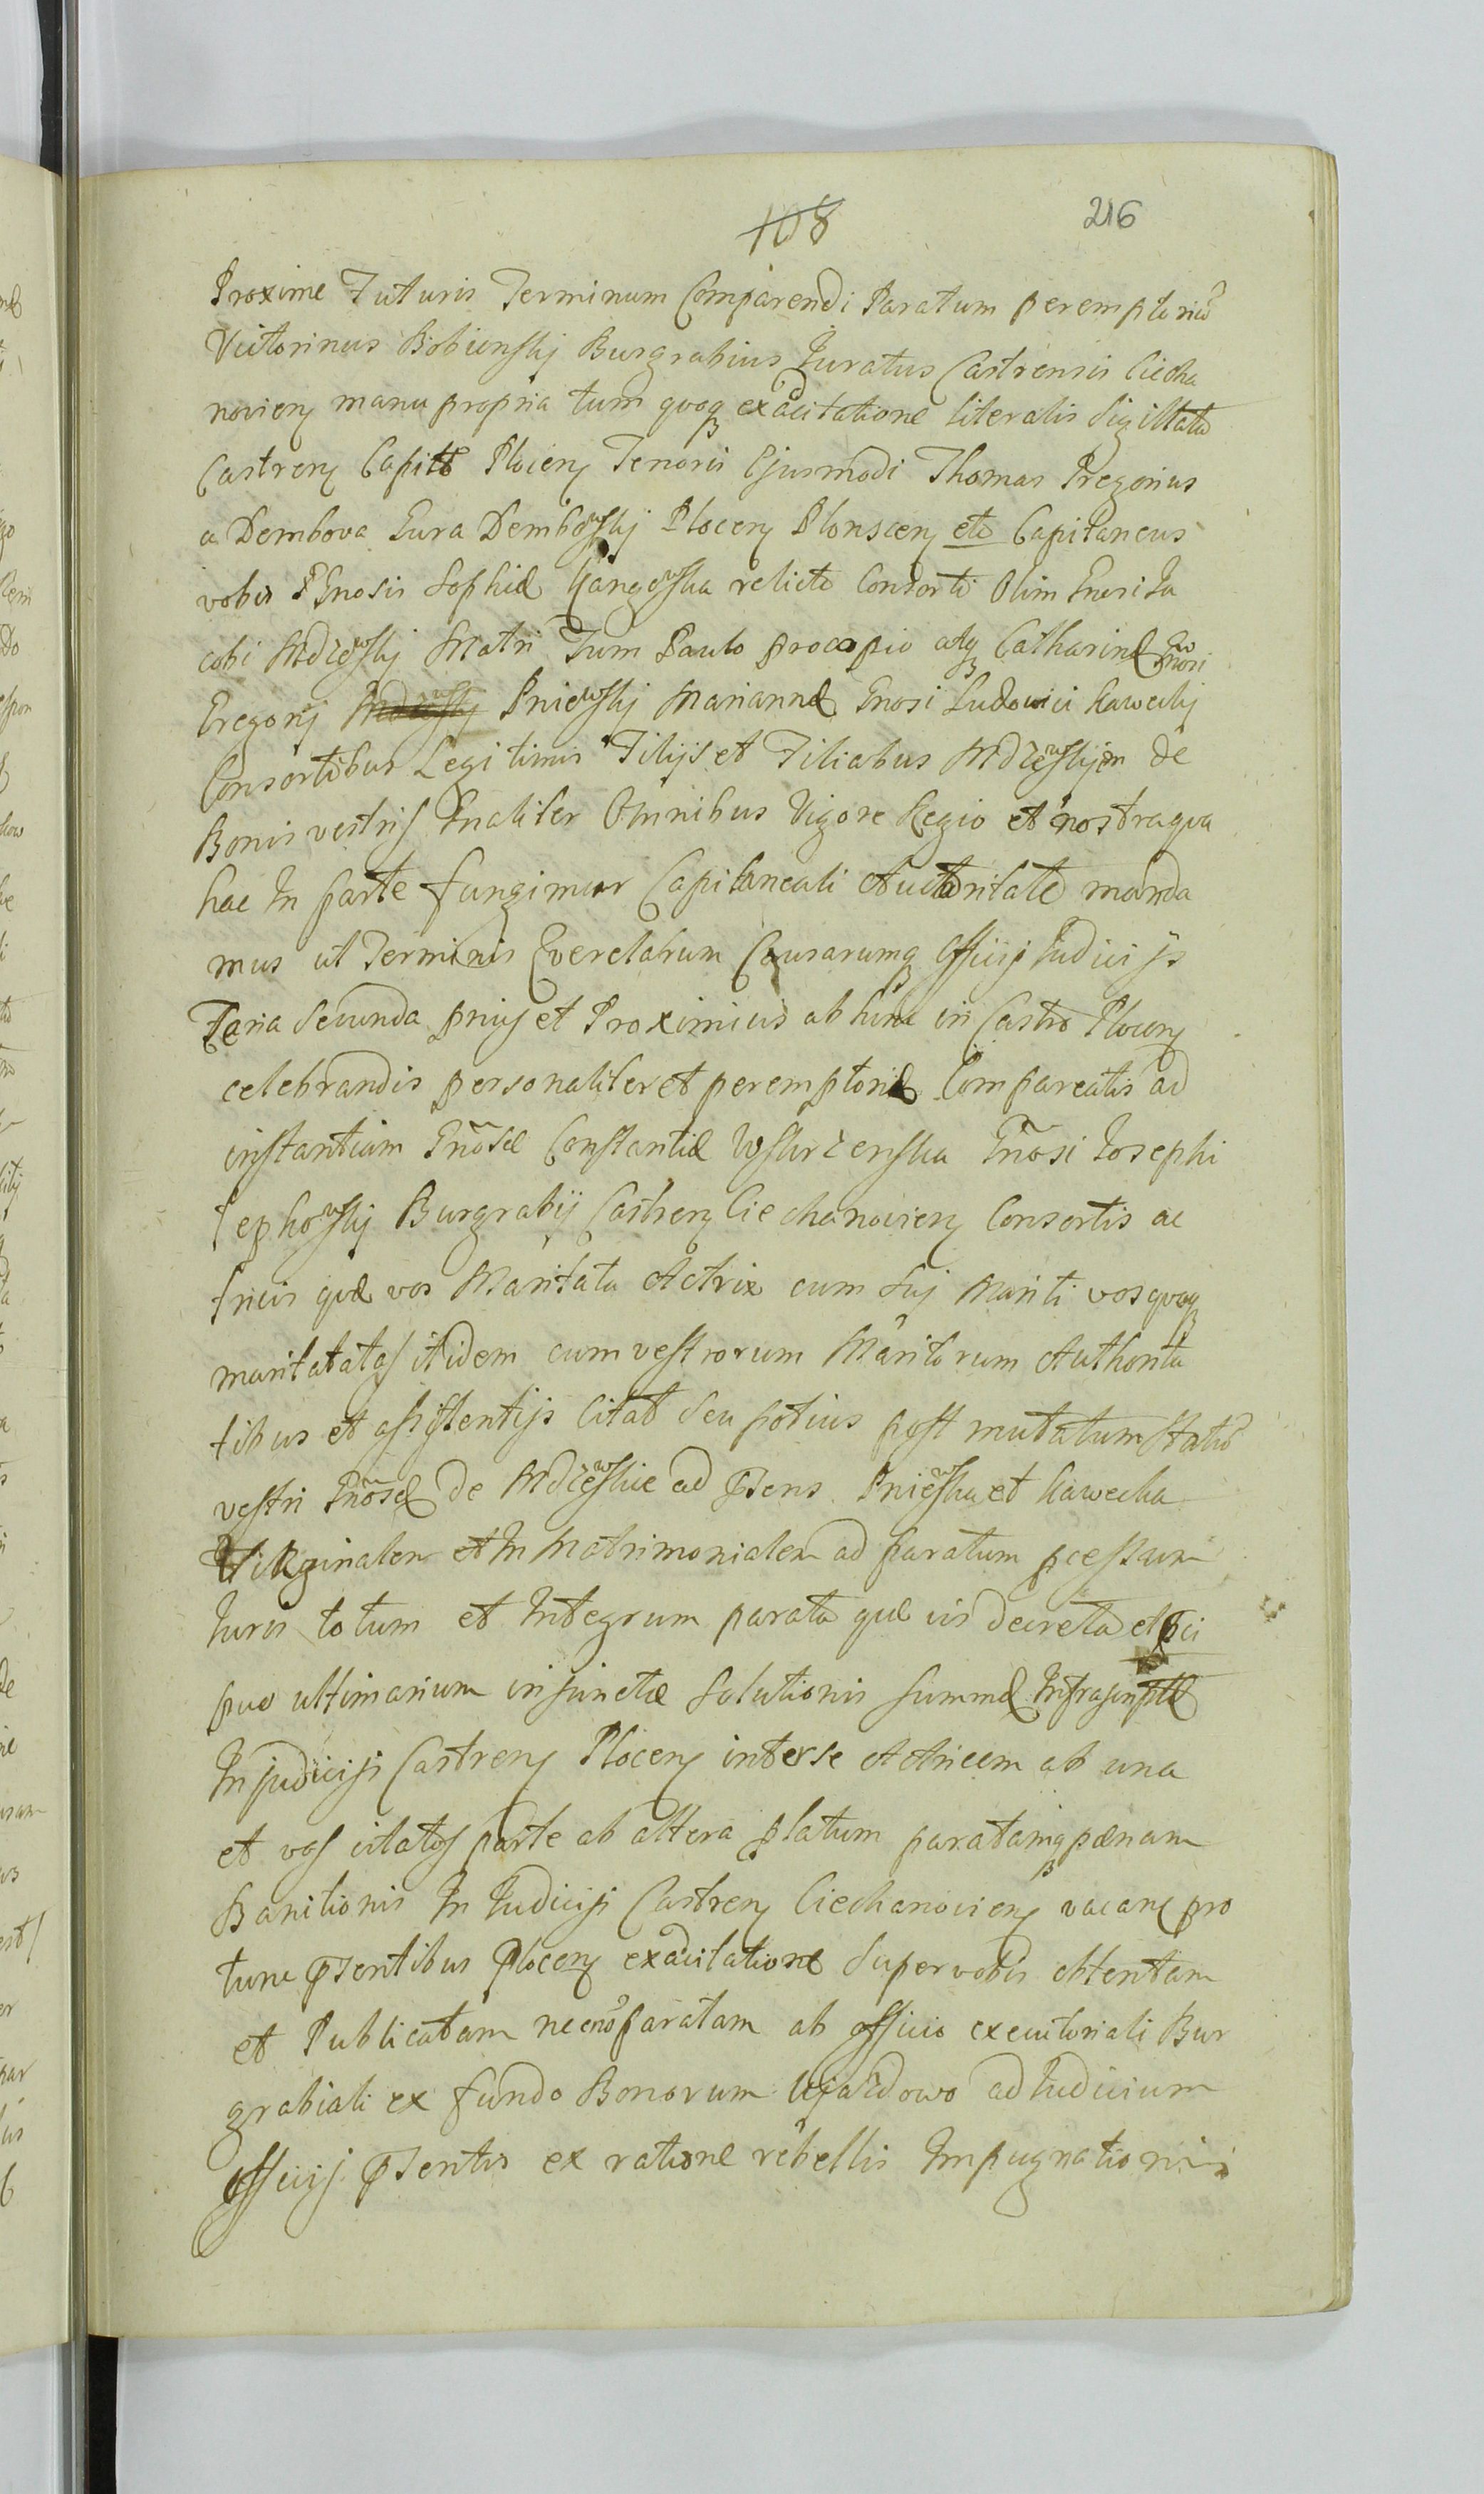 108 216
Proxime Futuris Terminum Comparendi Paratum peremptorie
Victorinus Bobienskj Burgrabius Juratus Castrensis Ciecha
novien manu propria tum quoq exacitatione literalis sigillata
Castren Capitt Plocen Tenoris Ejusmodi Thomas Gregorius
a Dembova Gura Dembowskj Plocen Plonscen etc Capitaneus
vobis Gnosis Sophiæ relictæ Consorti Olim Gnosi Ja
cobi Mdzewskj Matri Tum Paulo procopio atq Catharinæ Gnosi
Gregorij Pniewskj Mariannæ Gnosi Ludovici Kaweckj
Consortibus Legitimis Filijs et Filiabus Mdzewskjm de
Bonis vestris Gnaliter Omnibus Vigore Regio et nostra qva
hac In parte fungimur Capitaneali Auctoritate manda
mus ut Terminis Querelarum Causarumq Officij Judicijs
Feria Secunda prius et Proximius ab hinc in Castro Plocen
celebrandis personaliter et peremptorie Compareatis ad
instantiam Gñosæ Constantiæ Gñosi Josephi
Burgrabij Castren Ciechanovien Consortis ac
tricis quæ vos Maritata Actrix cum sui Mariti vos quoq
maritatas itidem cum vestrorum Maritorum Authorita
tibus et assistentijs Citat seu potius post mutatum statu
vestri Gñosæ de Mdzewskie ad psens Pniewska et Kawecka
Virginalem et In Matrimonialem ad paratum pcessum
Juris totum et Integrum parata quæ vis decreta et
puo ultimarium injunctæ Solutionis summæ Infrascriptæ
In judicijs Castren Plocen inter se Actricem ab una
et vos citatos parte ab altera platum paratamq pænam
Banitionis In Judicijs Castren Ciechanovien vacan pro
tunc psentibus Plocen exacitatione super vobis obtentam
et Publicatam necno paratam ab officio executoriali Bur
grabiali ex fundo Bonorum Ujazdowo ad Judicium
officij psentis ex ratione rebellis Impugnationis